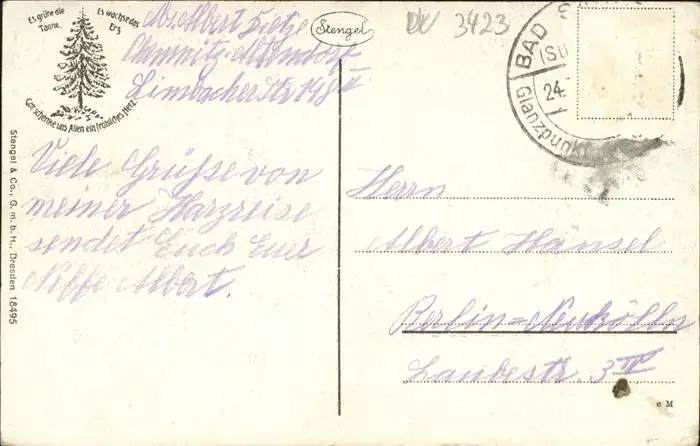 Es grüne die
Tanne,
Es wachse das
Erz
Gott schenke uns Allen ein fröhliches Herz
Stengel
DV 3423
Abs. Albert Tietze
Chemnitz-Altendorf
Limbacher Str 148 II
BAD S
(SÜ
24.
Glanzpunkt
Viele Grüße von
meiner Harzreise
sendet Euch Euer
Neffe Albert.
Herrn
Albert Hänsel
Berlin-Neukölln
Laubestr. 3 IV
Stengel & Co., G. m. b. H., Dresden 18495
e M